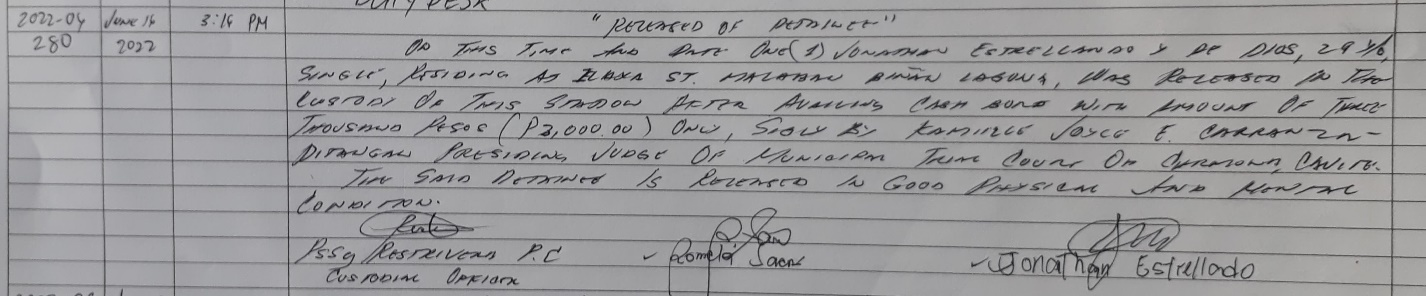 DUTY DESK
2022-04 June 14 3:14 PM "RELEASED OF DETAINEE"
280 2022 ON THIS TIME AND DATE ONE (1) JONATHAN ESTRELLANDO Y DE DIOS, 29 Y/O,
SINGLE, RESIDING AS ILAYA ST. MALABAN BIÑAN LAGUNA, WAS RELEASED IN THE
CUSTODY OF THIS STATION AFTER AVAILING CASH BOND WITH AMOUNT OF THREE
THOUSAND PESOS (P3,000.00) ONLY, SIGN BY KAMILLE JOYCE E. CARRANZA-
DITANGAN PRESIDING JUDGE OF MUNICIPAL TRIAL COURT OF CARMONA, CAVITE.
THE SAID DETAINEE IS RELEASED IN GOOD PHYSICAL AND MENTAL
CONDITION.
PSSg RESTRIVERA P.C Romela Saens Jonathan Estrellado
CUSTODIAL OFFICER